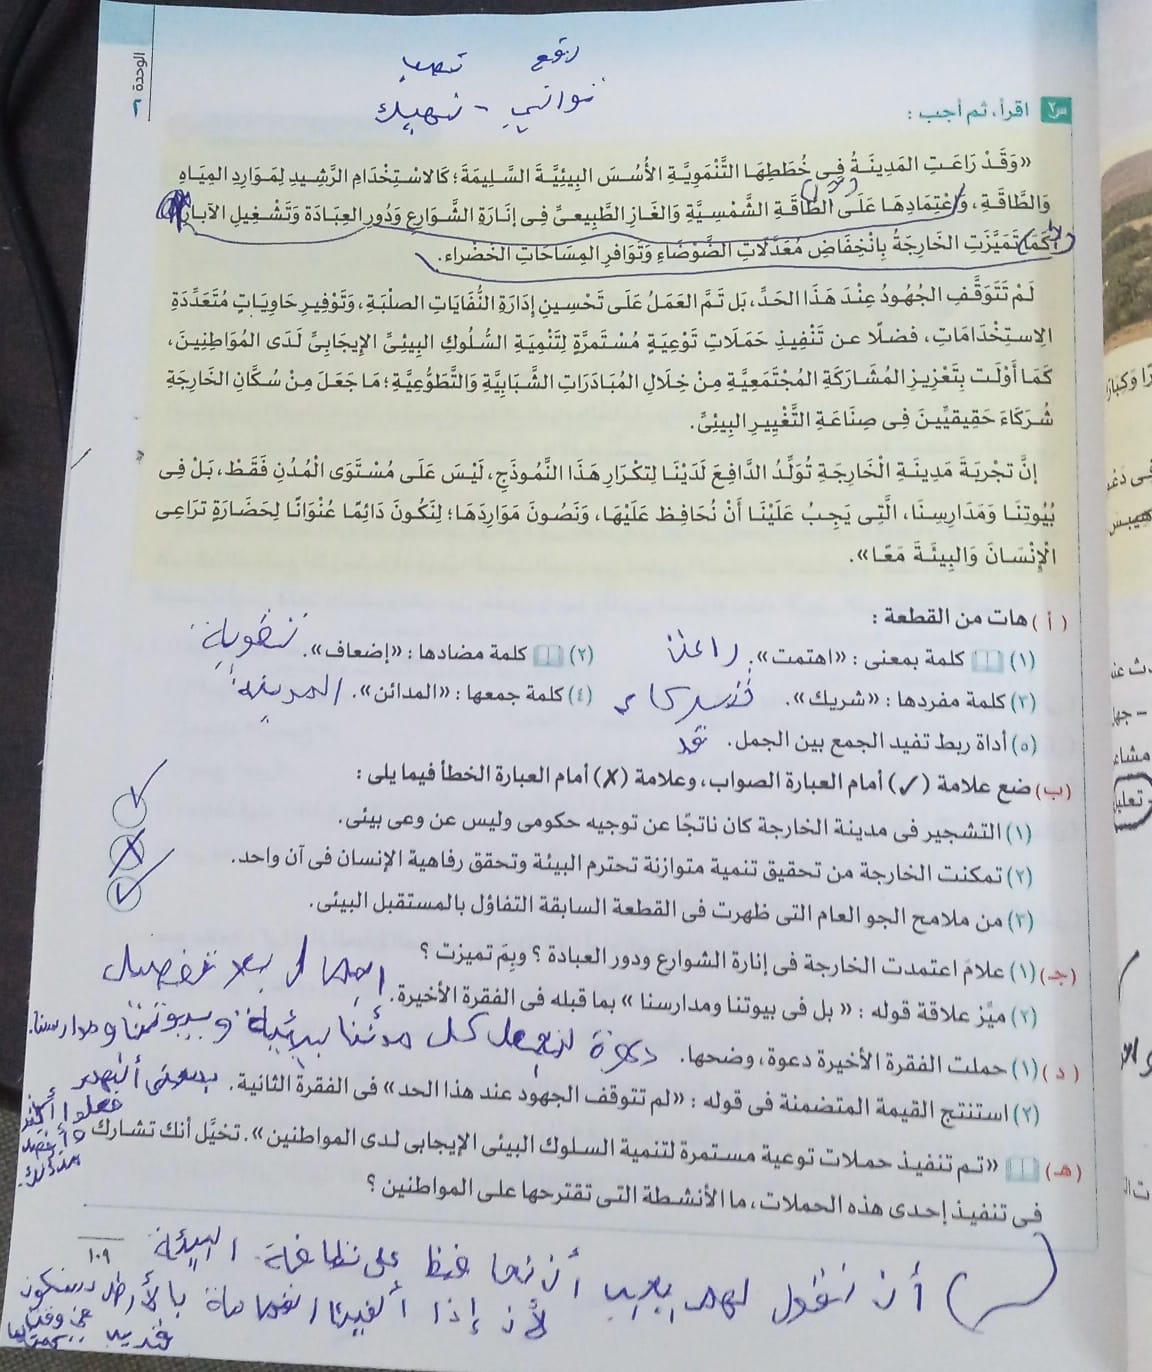 الوحدة ٢
رفع
تصب
س٢ اقرأ، ثم أجب :
«وَقَدْ رَاعَتِ المَدِينَةُ فِى خُطَطِهَا التَّنْمَوِيَّةِ الأُسُسَ البِيئِيَّةَ السَّلِيمَةَ؛ كَالاسْتِخْدَامِ الرَّشِيدِ لِمَوَارِدِ المِيَاهِ
وَالطَّاقَةِ، وَاعْتِمَادِهَا عَلَى الطَّاقَةِ الشَّمْسِيَّةِ وَالغَازِ الطَّبِيعىِّ فِى إنَارَةِ الشَّوَارِعِ وَدُورِ العِبَادَةِ وَتَشْغِيلِ الآبَارِ
كَمَا تَمَيَّزَتِ الخَارِجَةُ بِانْخِفَاضِ مُعَدَّلَاتِ الضَّوْضَاءِ وَتَوَافُرِ المِسَاحَاتِ الخَضْراء.
لَمْ تَتَوَقَّفِ الجُهُودُ عِنْدَ هَذَا الحَدِّ، بَل تَمَّ العَمَلُ عَلَى تَحْسِينِ إدَارَةِ النُّفَايَاتِ الصلْبَةِ، وَتَوْفِيرِ حَاوِيَاتٍ مُتَعَدِّدَةِ
الاِستِخْدَامَاتِ، فضلًا عن تَنْفِيذِ حَمَلَاتِ تَوْعِيَةٍ مُسْتَمرَّةٍ لِتَنْمِيَةِ السُّلُوكِ البِيئِىِّ الإيجَابِىِّ لَدَى المُوَاطِنِينَ،
كَمَا أَوْلَت بِتَعْزِيزِ المُشَارَكَةِ المُجْتَمَعِيَّةِ مِنْ خِلَالِ المُبَادَرَاتِ الشَّبَابِيَّةِ وَالتَّطَوُّعِيَّةِ؛ مَا جَعَلَ مِنْ سُكَّانِ الخَارِجَةِ
شُرَكَاءَ حَقِيقيِّينَ فِى صِنَاعَةِ التَّغْيِيرِ البِيئِىِّ.
إنَّ تجْرِبَةَ مَدِينَةِ الْخَارِجَةِ تُوَلِّدُ الدَّافِعَ لَدَيْنَا لِتكْرَارِ هَذَا النَّمُوذَجِ، لَيْسَ عَلَى مُسْتَوَى الْمُدُنِ فَقَطْ، بَلْ فِى
بُيُوتِنَا وَمَدَارِسِنَا، الَّتِى يَجِبُ عَلَيْنَا أَنْ نُحَافِظَ عَلَيْهَا، وَنَصُونَ مَوَارِدَهَا؛ لِنَكُونَ دَائِمًا عُنْوَانًا لِحَضَارَةٍ تُرَاعِى
الْإِنْسَانَ وَالبِيئَةَ مَعًا».
( أ ) هات من القطعة :
(١) كلمة بمعنى : «اهتمت». راعت (٢) كلمة مضادها : «إضعاف». تقوية
(٣) كلمة مفردها : «شريك». شركاء (٤) كلمة جمعها : «المدائن». المدينة
(٥) أداة ربط تفيد الجمع بين الجمل. قد
(ب) ضع علامة (✓) أمام العبارة الصواب، وعلامة (✗) أمام العبارة الخطأ فيما يلى :
(١) التشجير فى مدينة الخارجة كان ناتجًا عن توجيه حكومى وليس عن وعى بيئى. ✓
(٢) تمكنت الخارجة من تحقيق تنمية متوازنة تحترم البيئة وتحقق رفاهية الإنسان فى آن واحد. ✗
(٣) من ملامح الجو العام التى ظهرت فى القطعة السابقة التفاؤل بالمستقبل البيئى. ✓
(جـ) (١) علامَ اعتمدت الخارجة فى إنارة الشوارع ودور العبادة ؟ وبِمَ تميزت ؟
(٢) ميِّز علاقة قوله : « بل فى بيوتنا ومدارسنا » بما قبله فى الفقرة الأخيرة. إجمال بعد تفصيل
( د ) (١) حملت الفقرة الأخيرة دعوة، وضحها. دعوة لنجعل كل مدننا بيئية وبيوتنا ومدارسنا.
(٢) استنتج القيمة المتضمنة فى قوله : «لم تتوقف الجهود عند هذا الحد» فى الفقرة الثانية. بمعنى أنهم
فعلوا أكثر
(هـ) «تم تنفيذ حملات توعية مستمرة لتنمية السلوك البيئى الإيجابى لدى المواطنين». تخيَّل أنك تشارك
فى تنفيذ إحدى هذه الحملات، ما الأنشطة التى تقترحها على المواطنين ؟
أن نقول لهم يجب أن نحافظ على نظافة البيئة
لأن إذا ألقينا القمامة بالأرض
١٠٩